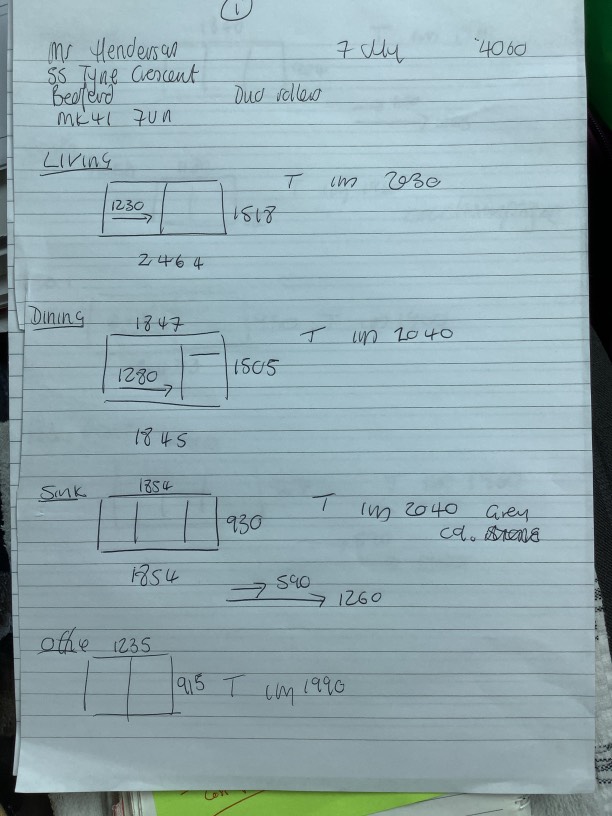 1
Mr Henderson 7 4060
55 Tyne Crescent
Bedford Duo rollers
MK41 7UN
LIVING
T im 2030
1230
1518
2464
Dining 1847
T im 2040
1280 1505
1845
Sink 1854
T im 2040 Grey
930
1854
590
1260
Office 1235
915 T im 1990